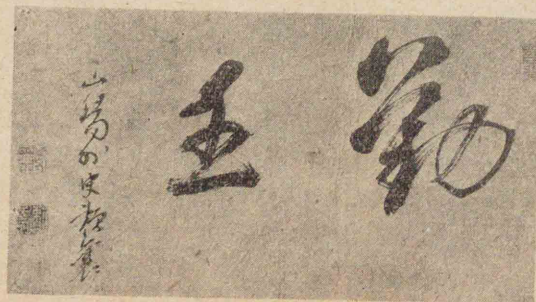 勤王
山陽外史頼襄